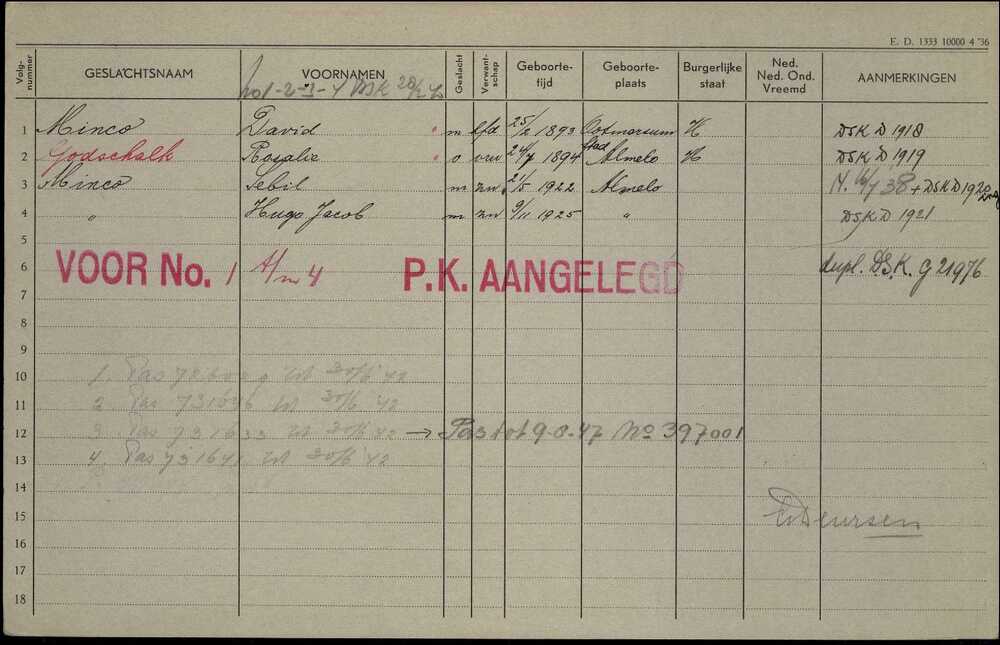 E. D. 1333 10000 4 '36
Volg-nummer GESLACHTSNAAM VOORNAMEN Geslacht Verwant-schap Geboorte-tijd Geboorte-plaats Burgerlijke staat Ned. Ned. Ond. Vreemd AANMERKINGEN
No 1-2-3-4 DSK 20/2 42
1 Minco David m hfd 25/2 1893 Ootmarsum H DSK D 1918
2 Godschalk Rosalie v vrw 24/7 1894 Stad Almelo H DSK D 1919
3 Minco Sebil m zn 21/5 1922 Almelo + DSK D 1920
4 " Hugo Jacob m zn 9/11 1925 " DSK D 1921
5
6 VOOR No. 1 t/m 4 P.K. AANGELEGD dupl. D.S.K. G 21976
7
8
9
10 1. Pas tot 30/6 42
11 2. Pas 731636 tot 30/6 42
12 3. Pas 731633 tot 30/6 42 → Pas tot 9-8-47 No 397001
13 4. Pas 731641 tot 30/6 42
14
15
16
17
18